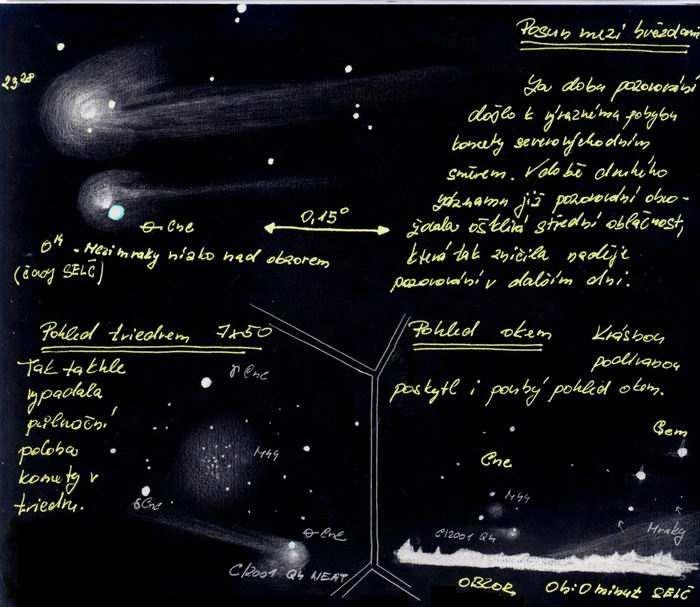 Posun mezi hvězdami
23 28
Za dobu pozorování
došlo k výraznému pohybu
komety severovýchodním
směrem. V době druhého
záznamu již pozorování
ošklivá střední oblačnost,
která tak zničila naděje
pozorování v dalším dni.
θ Cnc
0,15°
0 14 - Mezi mraky nízko nad obzorem
(časy SELČ)
Pohled triedrem 7x50
Tak takhle
vypadala
půlnoční
poloha
komety v
triedru.
γ Cnc
M44
δ Cnc
θ Cnc
C/2001 Q4 NEAT
Pohled okem
Krásnou
podívanou
poskytl i pouhý pohled okem.
Gem
Cnc
M44
C/2001 Q4
Mraky
OBZOR
0h:0 minut SELČ